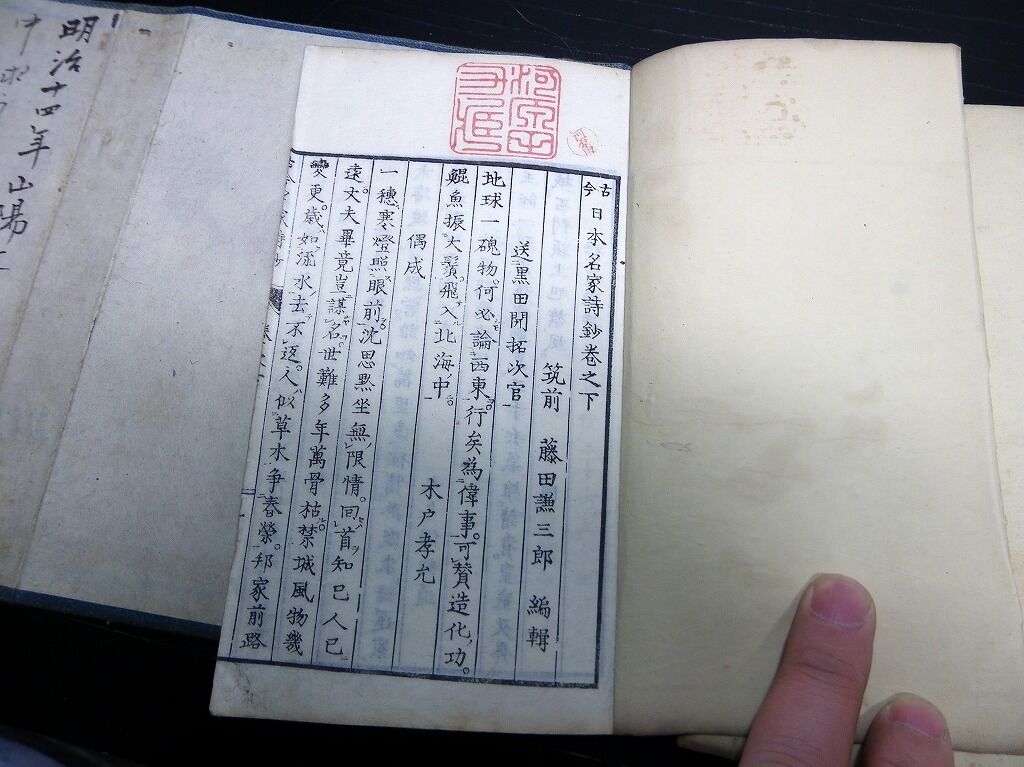 古今日本名家詩鈔卷之下
筑前 藤田謙三郎 編輯
送黒田開拓次官
地球一磈物。何必論西東。行矣為偉事。可贊造化功。
鯤魚振大鬚。飛入北海中。
偶成 木戸孝允
一穗寒燈照眼前。沈思黙坐無限情。回首知已人已
遠。丈夫畢竟豈謀名。世難多年萬骨枯。禁城風物幾
變更。歲如流水去不返。人似草木爭春榮。邦家前路
明治十四年山陽